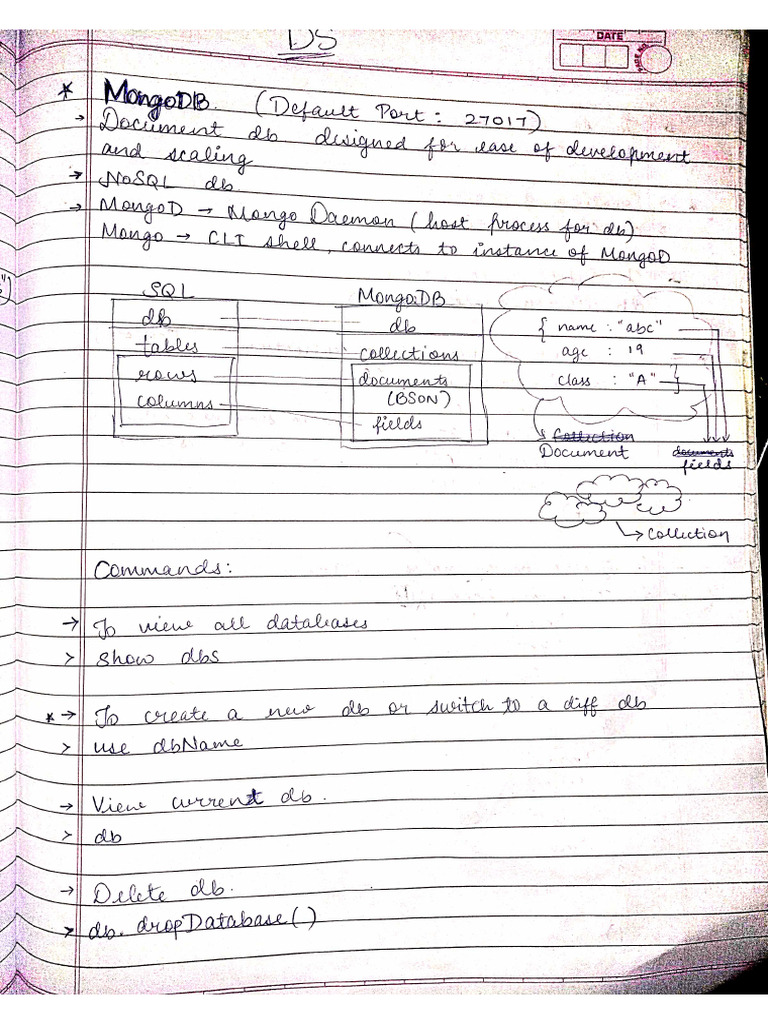 DS
DATE
PAGE NO.
* MongoDB. (Default Port : 27017)
→ Document db designed for ease of development
and scaling
→ NoSQL db.
→ MongoD → Mongo Daemon (host process for db)
Mongo → CLI shell, connects to instance of MongoD
SQL
db
tables
rows
columns
MongoDB
db
collections
documents
(BSON)
fields
{ name : "abc"
age : 19
class : "A" }
Collection
Document
documents
fields
↳ Collection
Commands:
→ To view all databases
> show dbs
* → To create a new db or switch to a diff db
> use dbName
→ View current db.
> db
→ Delete db.
> db.dropDatabase()